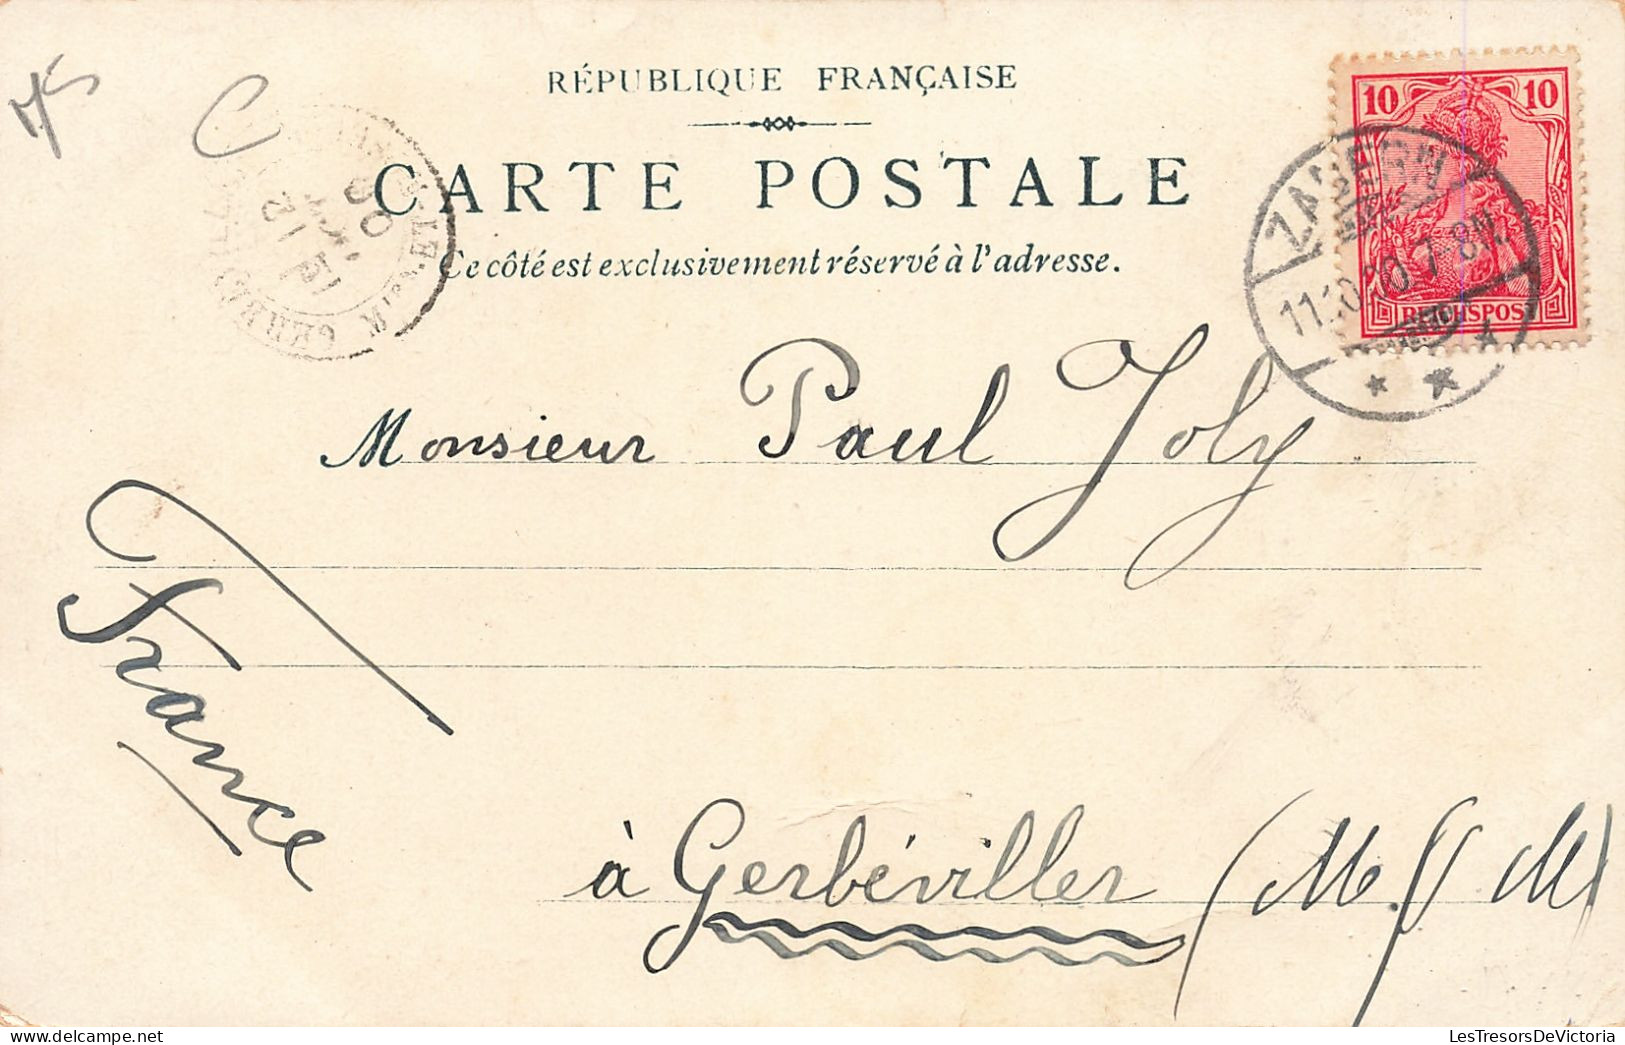 RÉPUBLIQUE FRANÇAISE
CARTE POSTALE
Ce côté est exclusivement réservé à l'adresse.
10 10
REICHSPOST
ZABERN
11.10.00. 7-8N.
Monsieur Paul Joly
France
à Gerbéviller (Me. & M)
LesTresorsDeVictoria